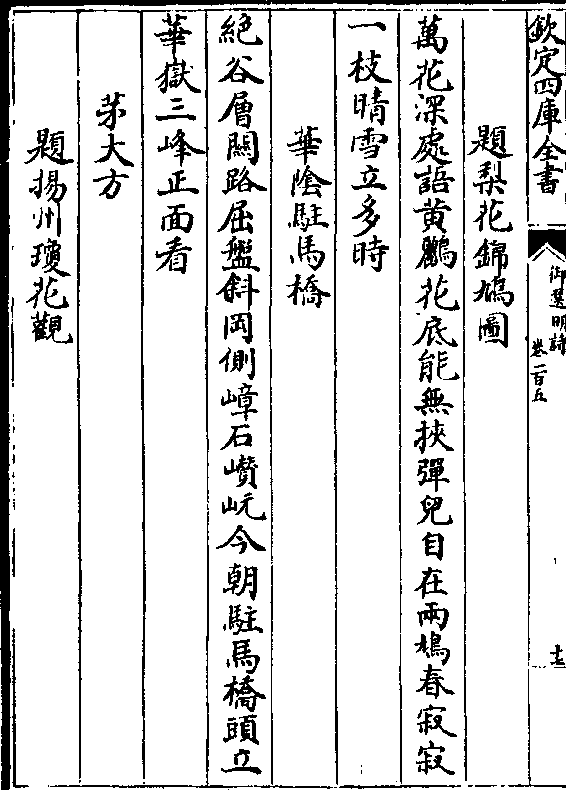 欽定四庫全書
御選明詩
卷一百五
十三
題梨花錦鳩圖
萬花深處語黃鸝花底能無挾彈兒自在兩鳩春寂寂
一枝晴雪立多時
華陰駐馬橋
絕谷層關路屈盤斜岡側嶂石巑岏今朝駐馬橋頭立
華嶽三峰正面看
茅大方
題揚州瓊花觀